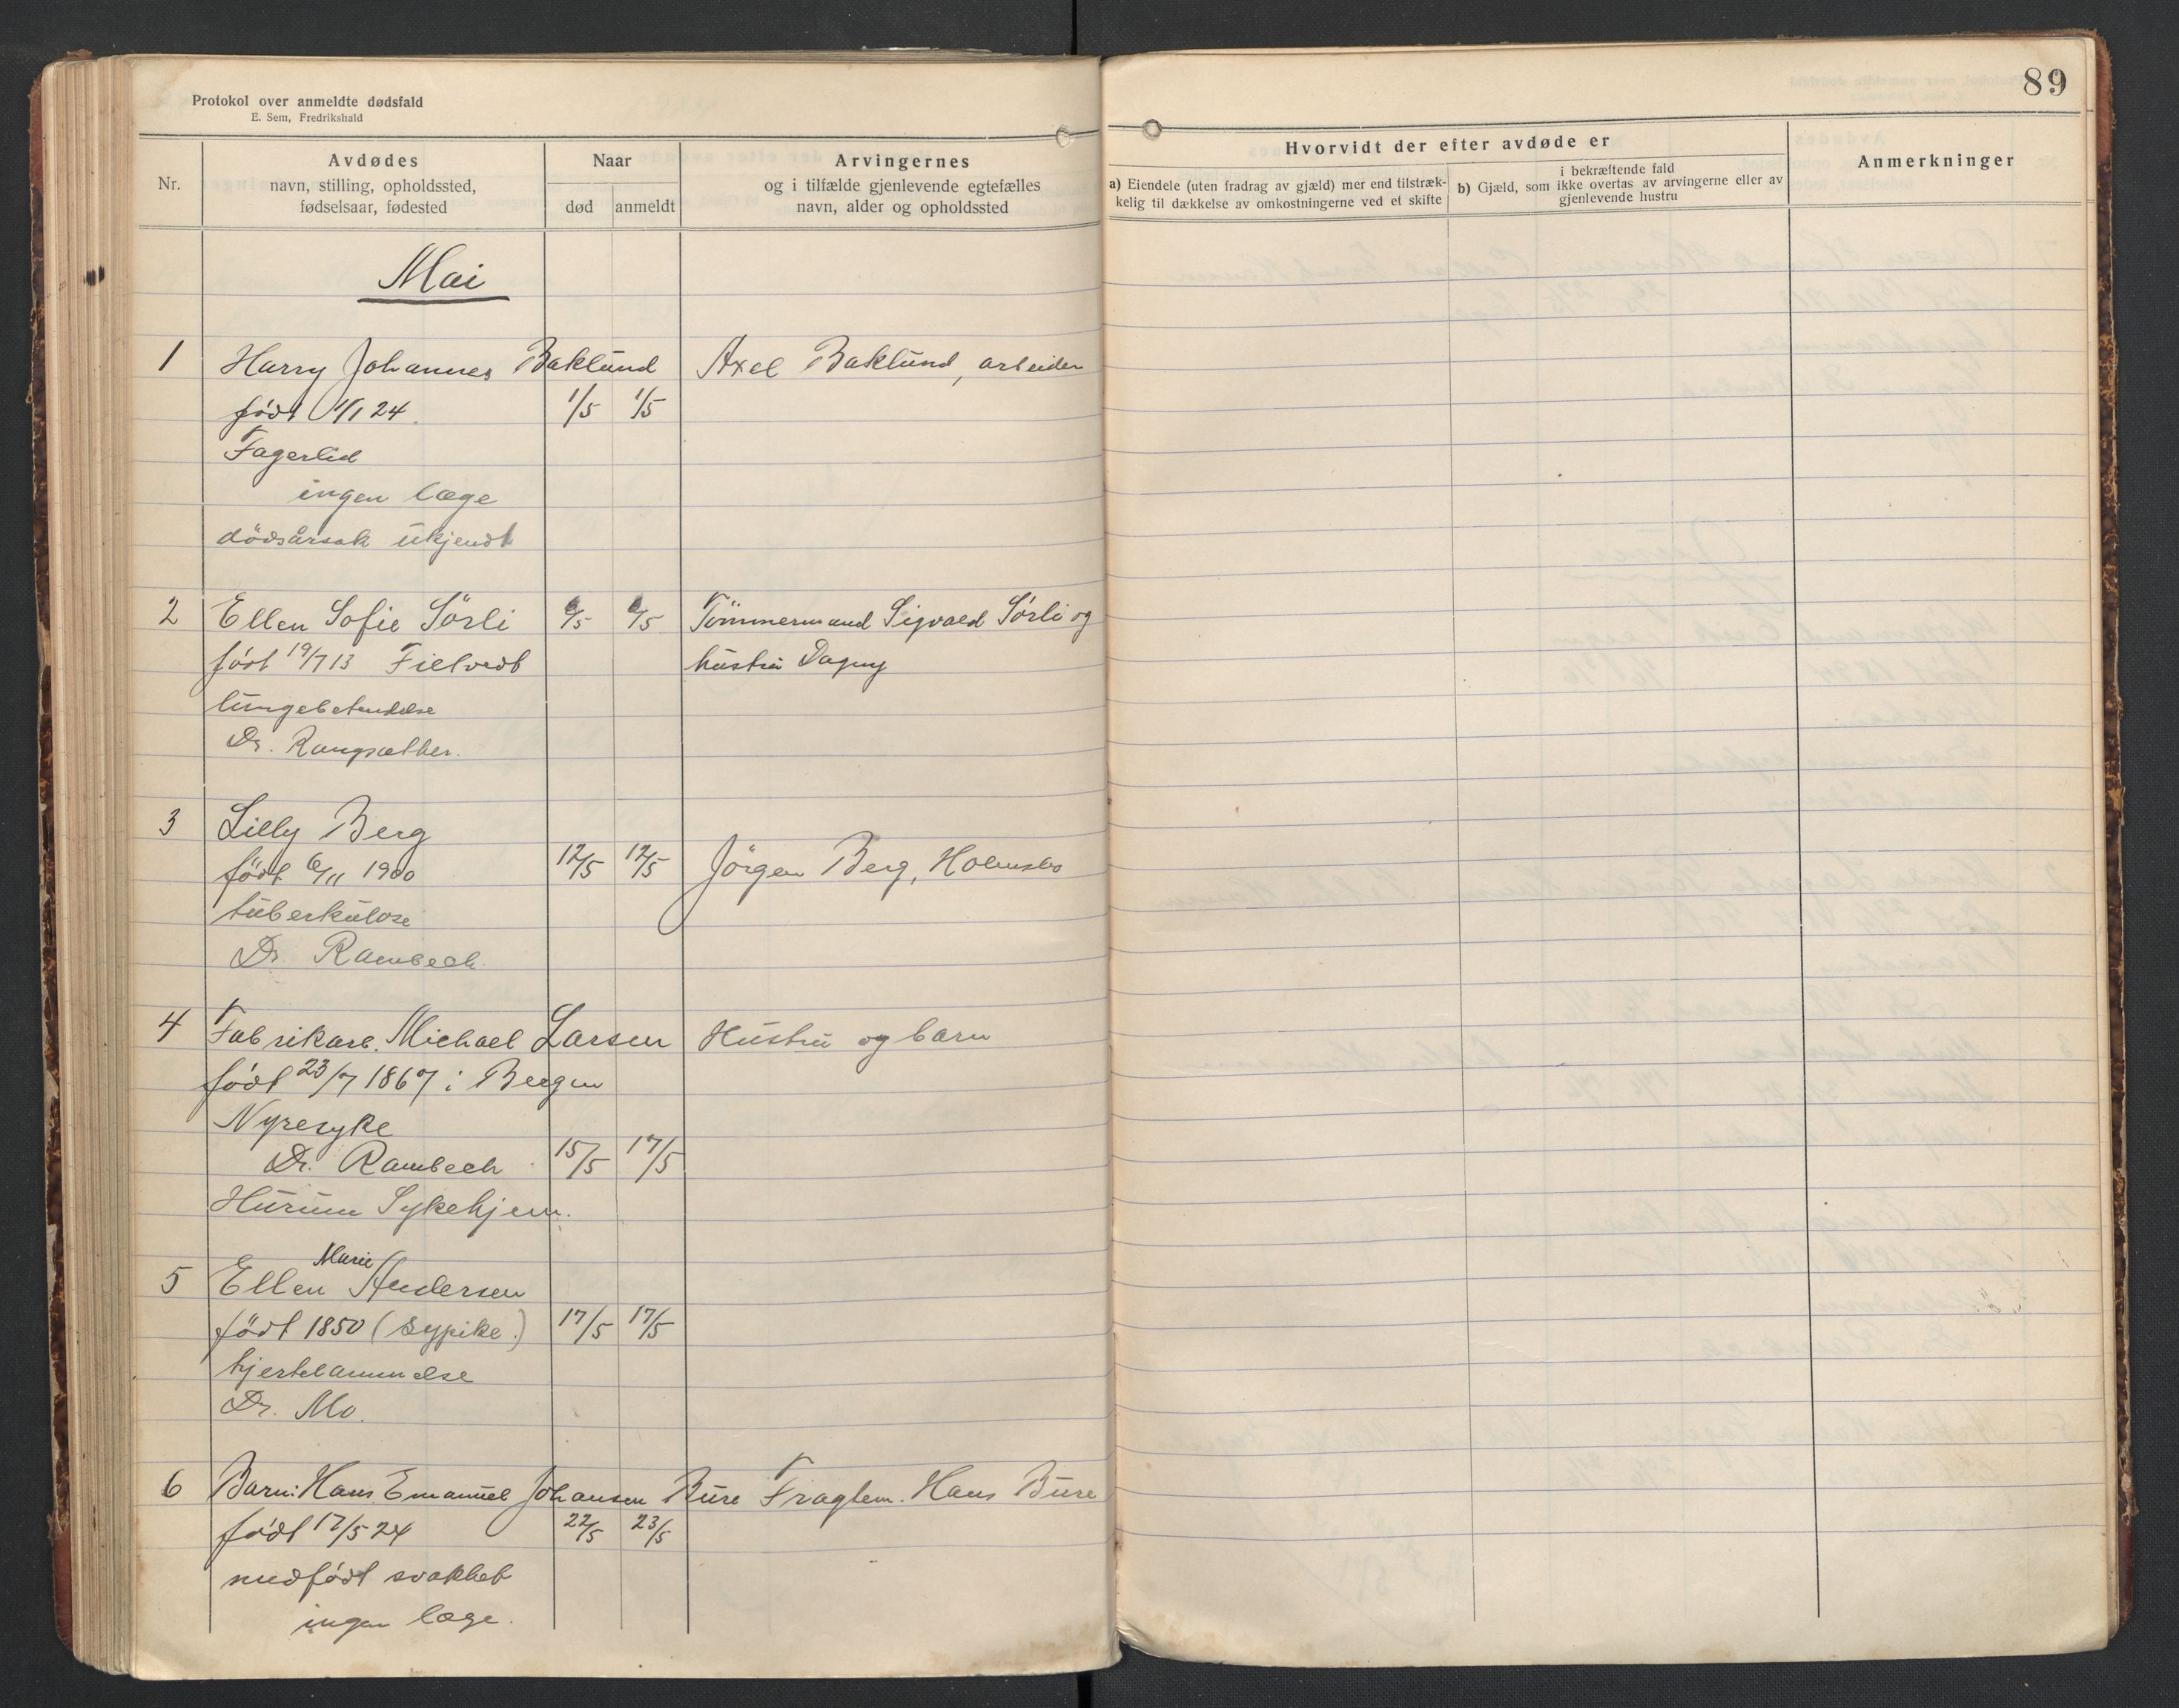 Protokol over anmeldte dødsfald
E. Sem, Fredrikshald
89
Nr.
Avdødes
navn, stilling, opholdssted,
fødselsaar, fødested
Naar
død anmeldt
Arvingernes
og i tilfælde gjenlevende egtefælles
navn, alder og opholdssted
Hvorvidt der efter avdøde er
a) Eiendele (uten fradrag av gjæld) mer end tilstræk-
kelig til dækkelse av omkostningerne ved et skifte
i bekræftende fald
b) Gjæld, som ikke overtas av arvingerne eller av
gjenlevende hustru
Anmerkninger
Mai
1 Harry Johannes Baklund Axel Baklund, arbeider
født 1/1 24. 1/5 1/5
Fagerlid
ingen læge
dödsårsak ukjendt
2 Ellen Sofie Sörli 6/5 6/5 Tömmermand Sigvald Sörli og
født 19/7 13 Fieltvedt hustru Dagny
lungebetendelse
Dr. Rangsæther.
3 Lilly Berg
født 6/11 1900 12/5 12/5 Jörgen Berg, Holmsbo
tuberkulose
Dr. Rambech
4 Fabrikarb. Michael Larsen Hustru og barn
født 23/7 1867 i Bergen
Nyresyke
Dr. Rambech 15/5 17/5
Hurum Sykehjem.
Marie
5 Ellen Andersen
født 1850 (sypike.) 17/5 17/5
hjertelammelse
Dr. Mo.
6 Barn: Hans Emanuel Johansen Bure Fragtem. Hans Bure
født 17/5 24 22/5 23/5
medfødt svakhet
ingen læge.